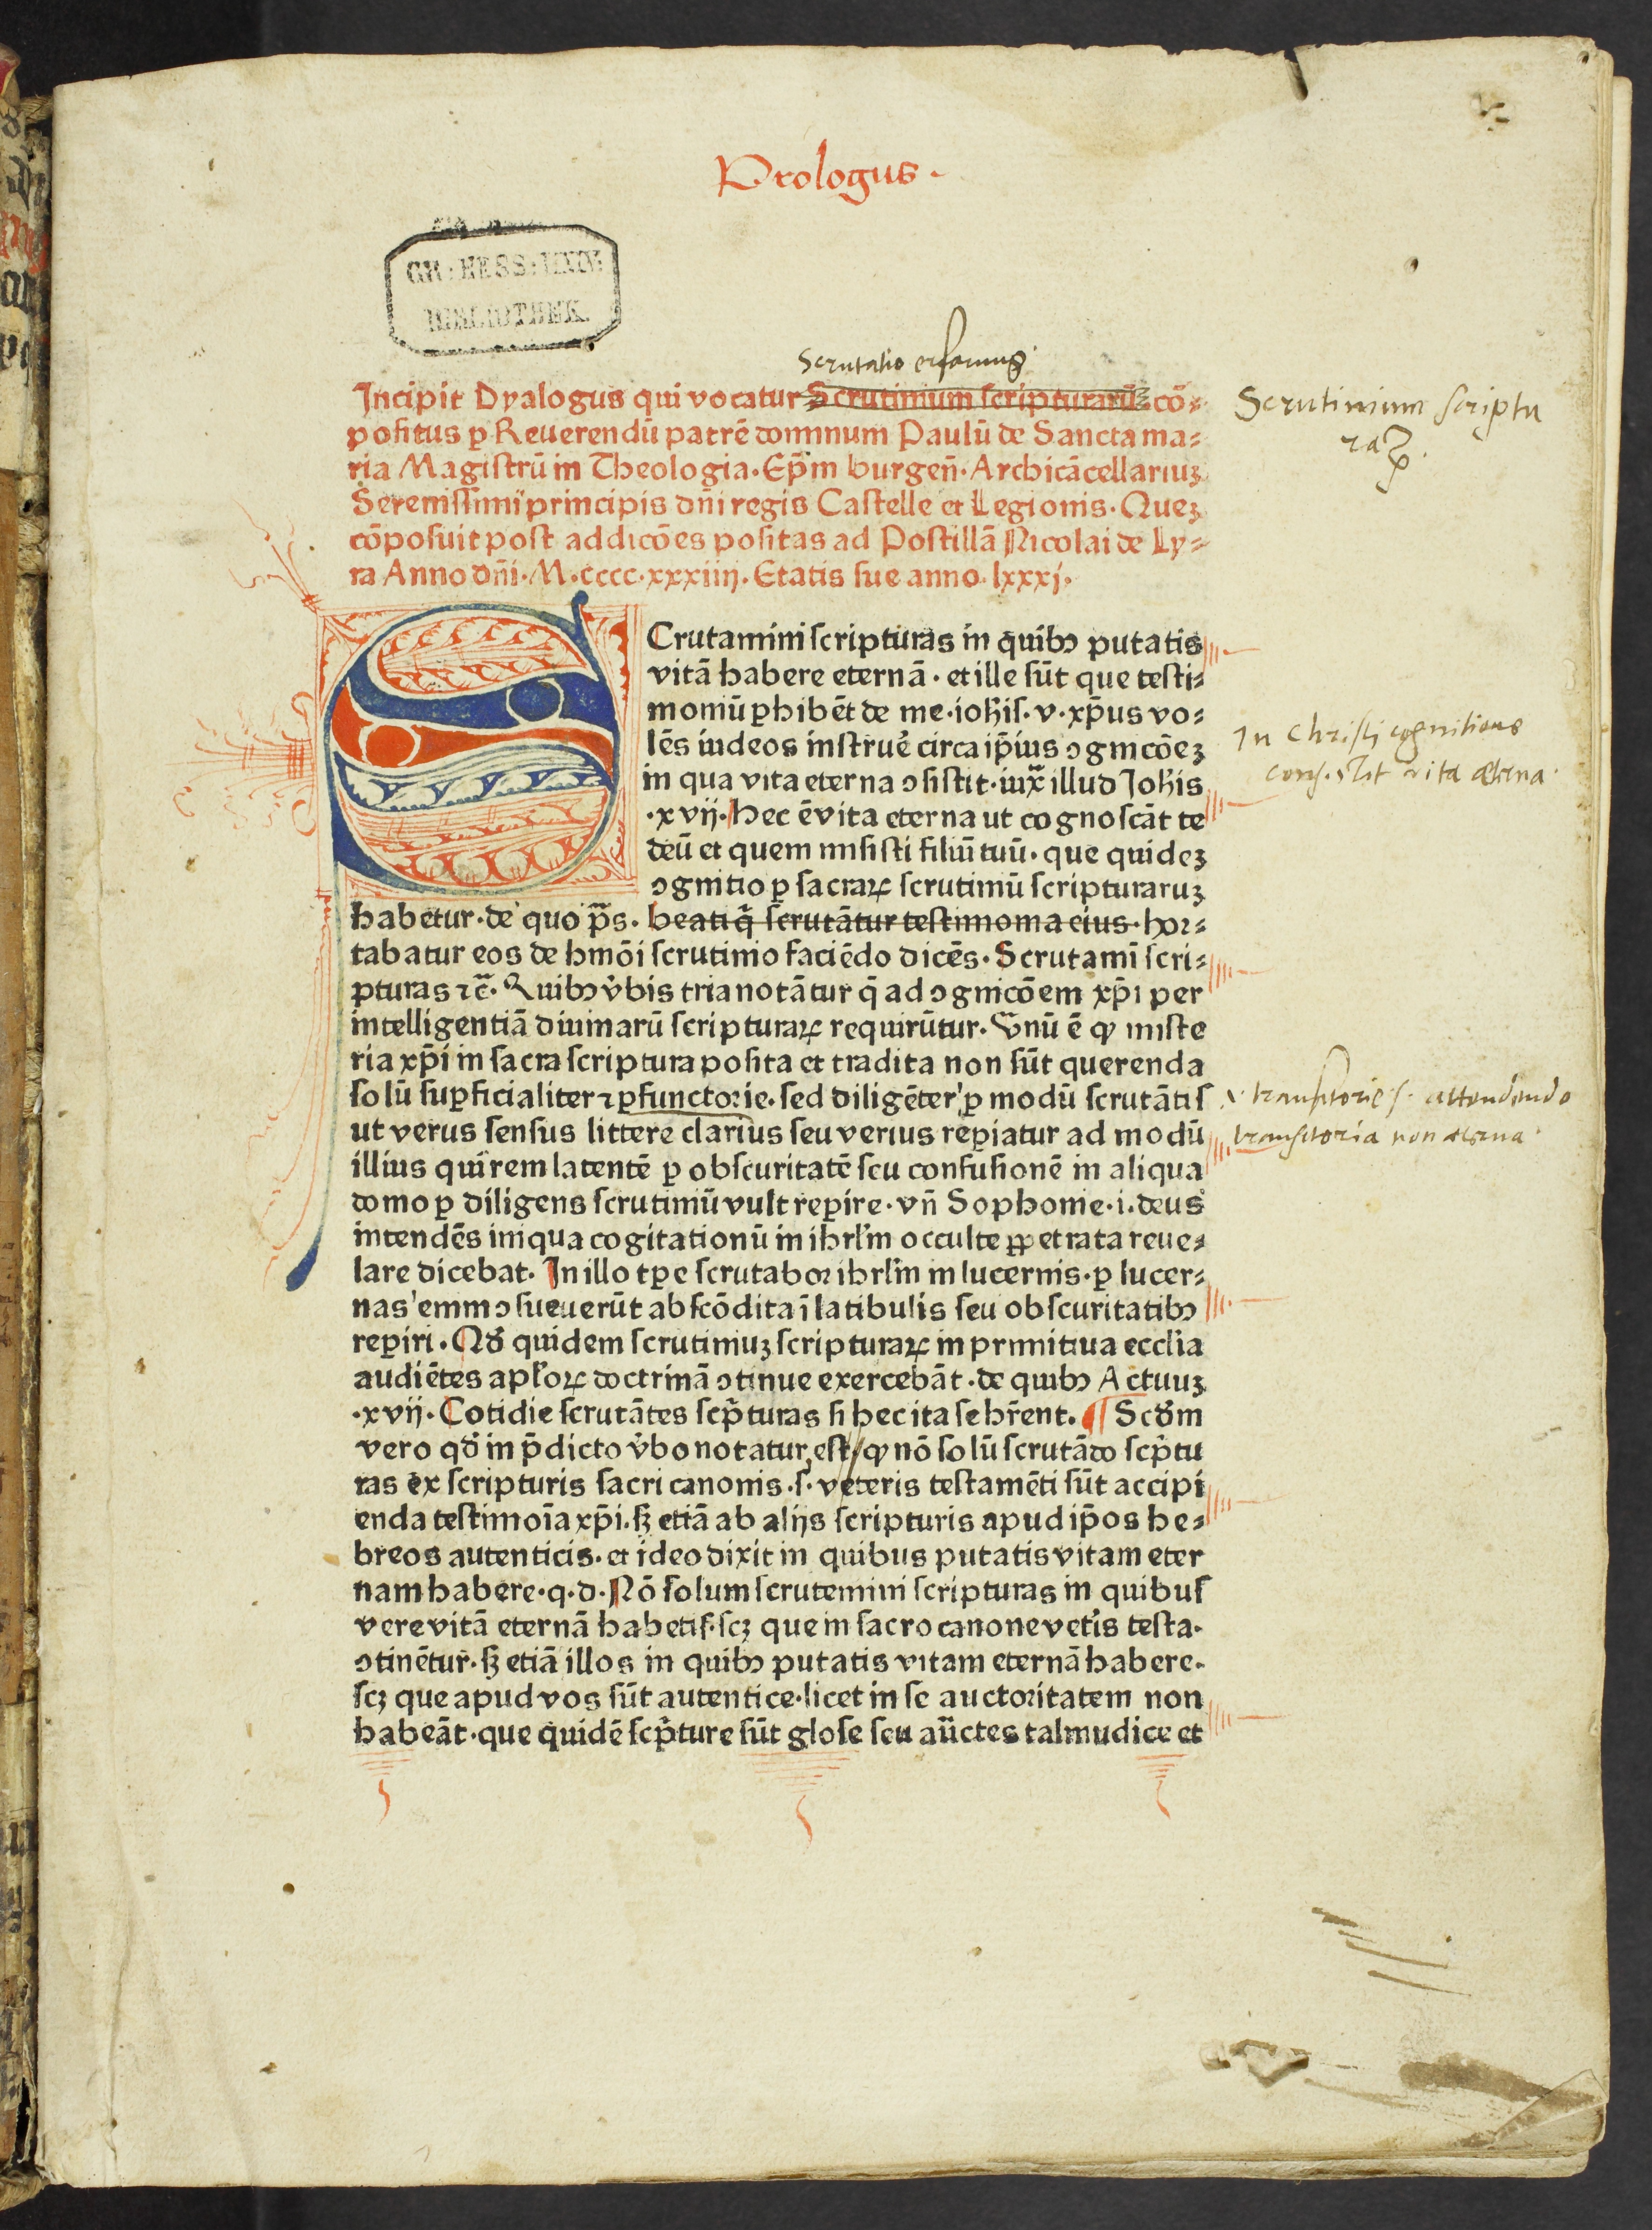 Prologus.
GR: HESS: UNIV:
BIBLIOTHEK.
Scrutatio
Incipit Dyalogus qui vocatur Scrutinium scripturarū cō⸗
positus ꝑ Reuerendū patrē dominum Paulū de Sancta ma⸗
ria Magistrū in Theologia. Ep̄m burgen̄. Archicācellariuʒ
Serenissimi principis dn̄i regis Castelle et Legionis. Queʒ
cōposuit post addicōes positas ad Postillā Nicolai de Ly⸗
ra Anno dn̄i. M.cccc.xxxiiij. Etatis sue anno. lxxxj.
Scrutinium scriptu
raꝝ.
SCrutamini scripturas in quibꝰ putatis
vitā habere eternā. et ille sūt que testi⸗
moniū ꝑhibēt de me. ioh̄is. v. xp̄us vo⸗
lēs iudeos instruē circa ip̄ius ꝯgnicōeʒ
in qua vita eterna ꝯsistit. iux̄ illud Joh̄is
.xvij. Hec ē vita eterna ut cognoscāt te
deū et quem misisti filiū tuū. que quideʒ
ꝯgnitio ꝑ sacraꝝ scrutiniū scripturaruʒ
In Christi cognitione
consistit vita æterna.
habetur. de quo p̄s. beati q̄ scrutātur testimonia eius. hor⸗
tabatur eos de hmōi scrutinio faciēdo dicēs. Scrutamī scri⸗
pturas ⁊c̄. Quibꝰ v̓bis tria notātur q̄ ad ꝯgnicōem xp̄i per
intelligentiā diuinarū scripturaꝝ requirūtur. Vnū ē ꝙ miste
ria xp̄i in sacra scriptura posita et tradita non sūt querenda
solū suꝑficialiter ⁊ ꝑfunctorie. sed diligēter ꝑ modū scrutātis
ut verus sensus littere clarius seu verius reꝑiatur ad modū
illius qui rem latentē ꝑ obscuritatē seu confusionē in aliqua
domo ꝑ diligens scrutiniū vult reꝑire. vn̄ Sophonie. i. deus
intendēs iniqua cogitationū in ihrl̄m occulte ꝑpetrata reue⸗
lare dicebat. In illo tꝑe scrutabor ihrl̄m in lucernis. ꝑ lucer⸗
nas enim ꝯsueuerūt abscōdita ī latibulis seu obscuritatibꝰ
reꝑiri. Qd̓ quidem scrutiniuʒ scripturaꝝ in primitiua ecclia
audiētes apl̓oꝝ doctrinā ꝯtinue exercebāt. de quibꝰ Actuuʒ
.xvij. Cotidie scrutātes scp̄turas si hec ita se hr̄ent. ¶ Scd̓m
vero qd̓ in p̄dicto v̓bo notatur, est, ꝙ nō solū scrutādo scp̄tu
ras ex scripturis sacri canonis .s. veteris testamēti sūt accipi
enda testimoīa xp̄i. sʒ etiā ab alijs scripturis apud ip̄os he⸗
breos autenticis. et ideo dixit in quibus putatis vitam eter
nam habere. q.d. Nō solum scrutemini scripturas in quibus
vere vitā eternā habetis. scʒ que in sacro canone vet̓is testa.
ꝯtinētur. sʒ etiā illos in quibꝰ putatis vitam eternā habere.
scʒ que apud vos sūt autentice. licet in se auctoritatem non
habeāt. que quidē scp̄ture sūt glose seu aūctes talmudice et
transitorie s. attendendo
transitoria non æterna.